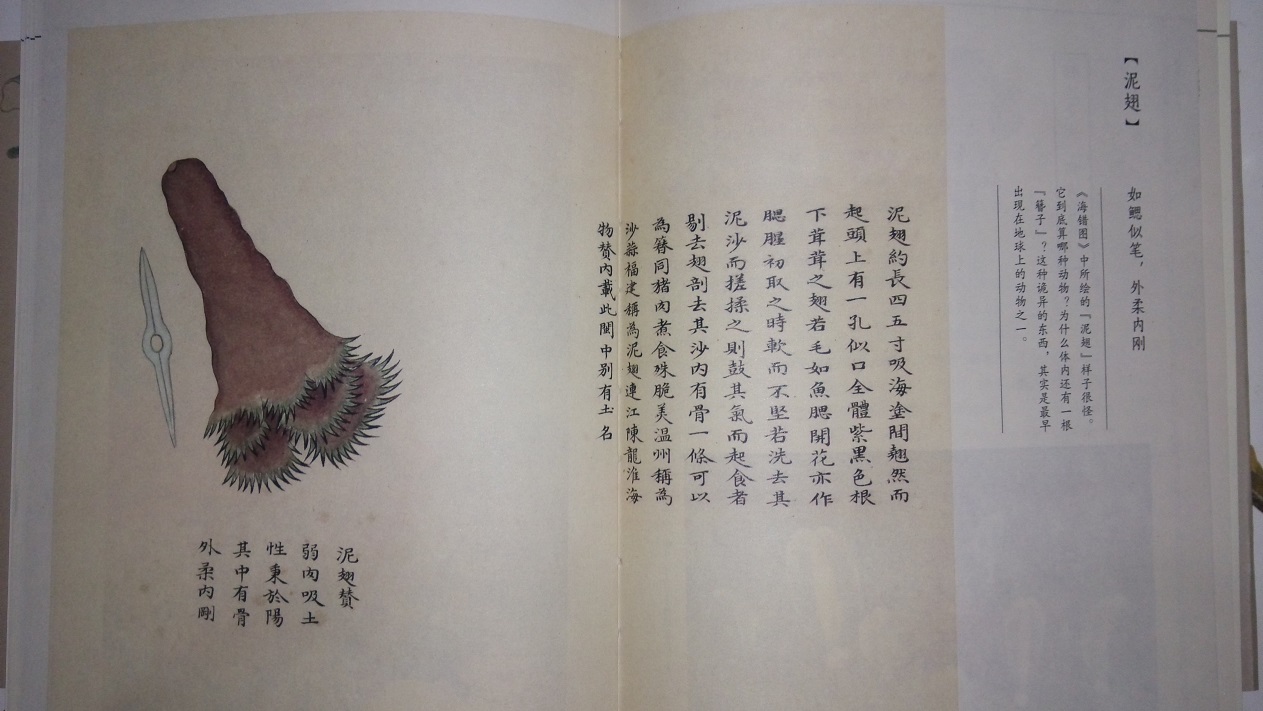 【泥翅】
如鳃似笔，外柔内刚
《海错图》中所绘的『泥翅』样子很怪。
它到底算哪种动物？为什么体内还有一根
『簪子』？这种诡异的东西，其实是最早
出现在地球上的动物之一。
泥翅約長四五寸吸海塗間翹然而
起頭上有一孔似口全體紫黑色根
下茸茸之翅若毛如魚腮開花亦作
腮腥初取之時軟而不堅若洗去其
泥沙而搓揉之則鼓其氣而起食者
剔去翅剖去其沙內有骨一條可以
為簪同猪肉煮食殊脆美温州稱為
沙蒜福建稱為泥翅連江陳龍淮海
物贊內載此閩中別有土名
泥翅贊
弱肉吸土
性秉於陽
其中有骨
外柔內剛